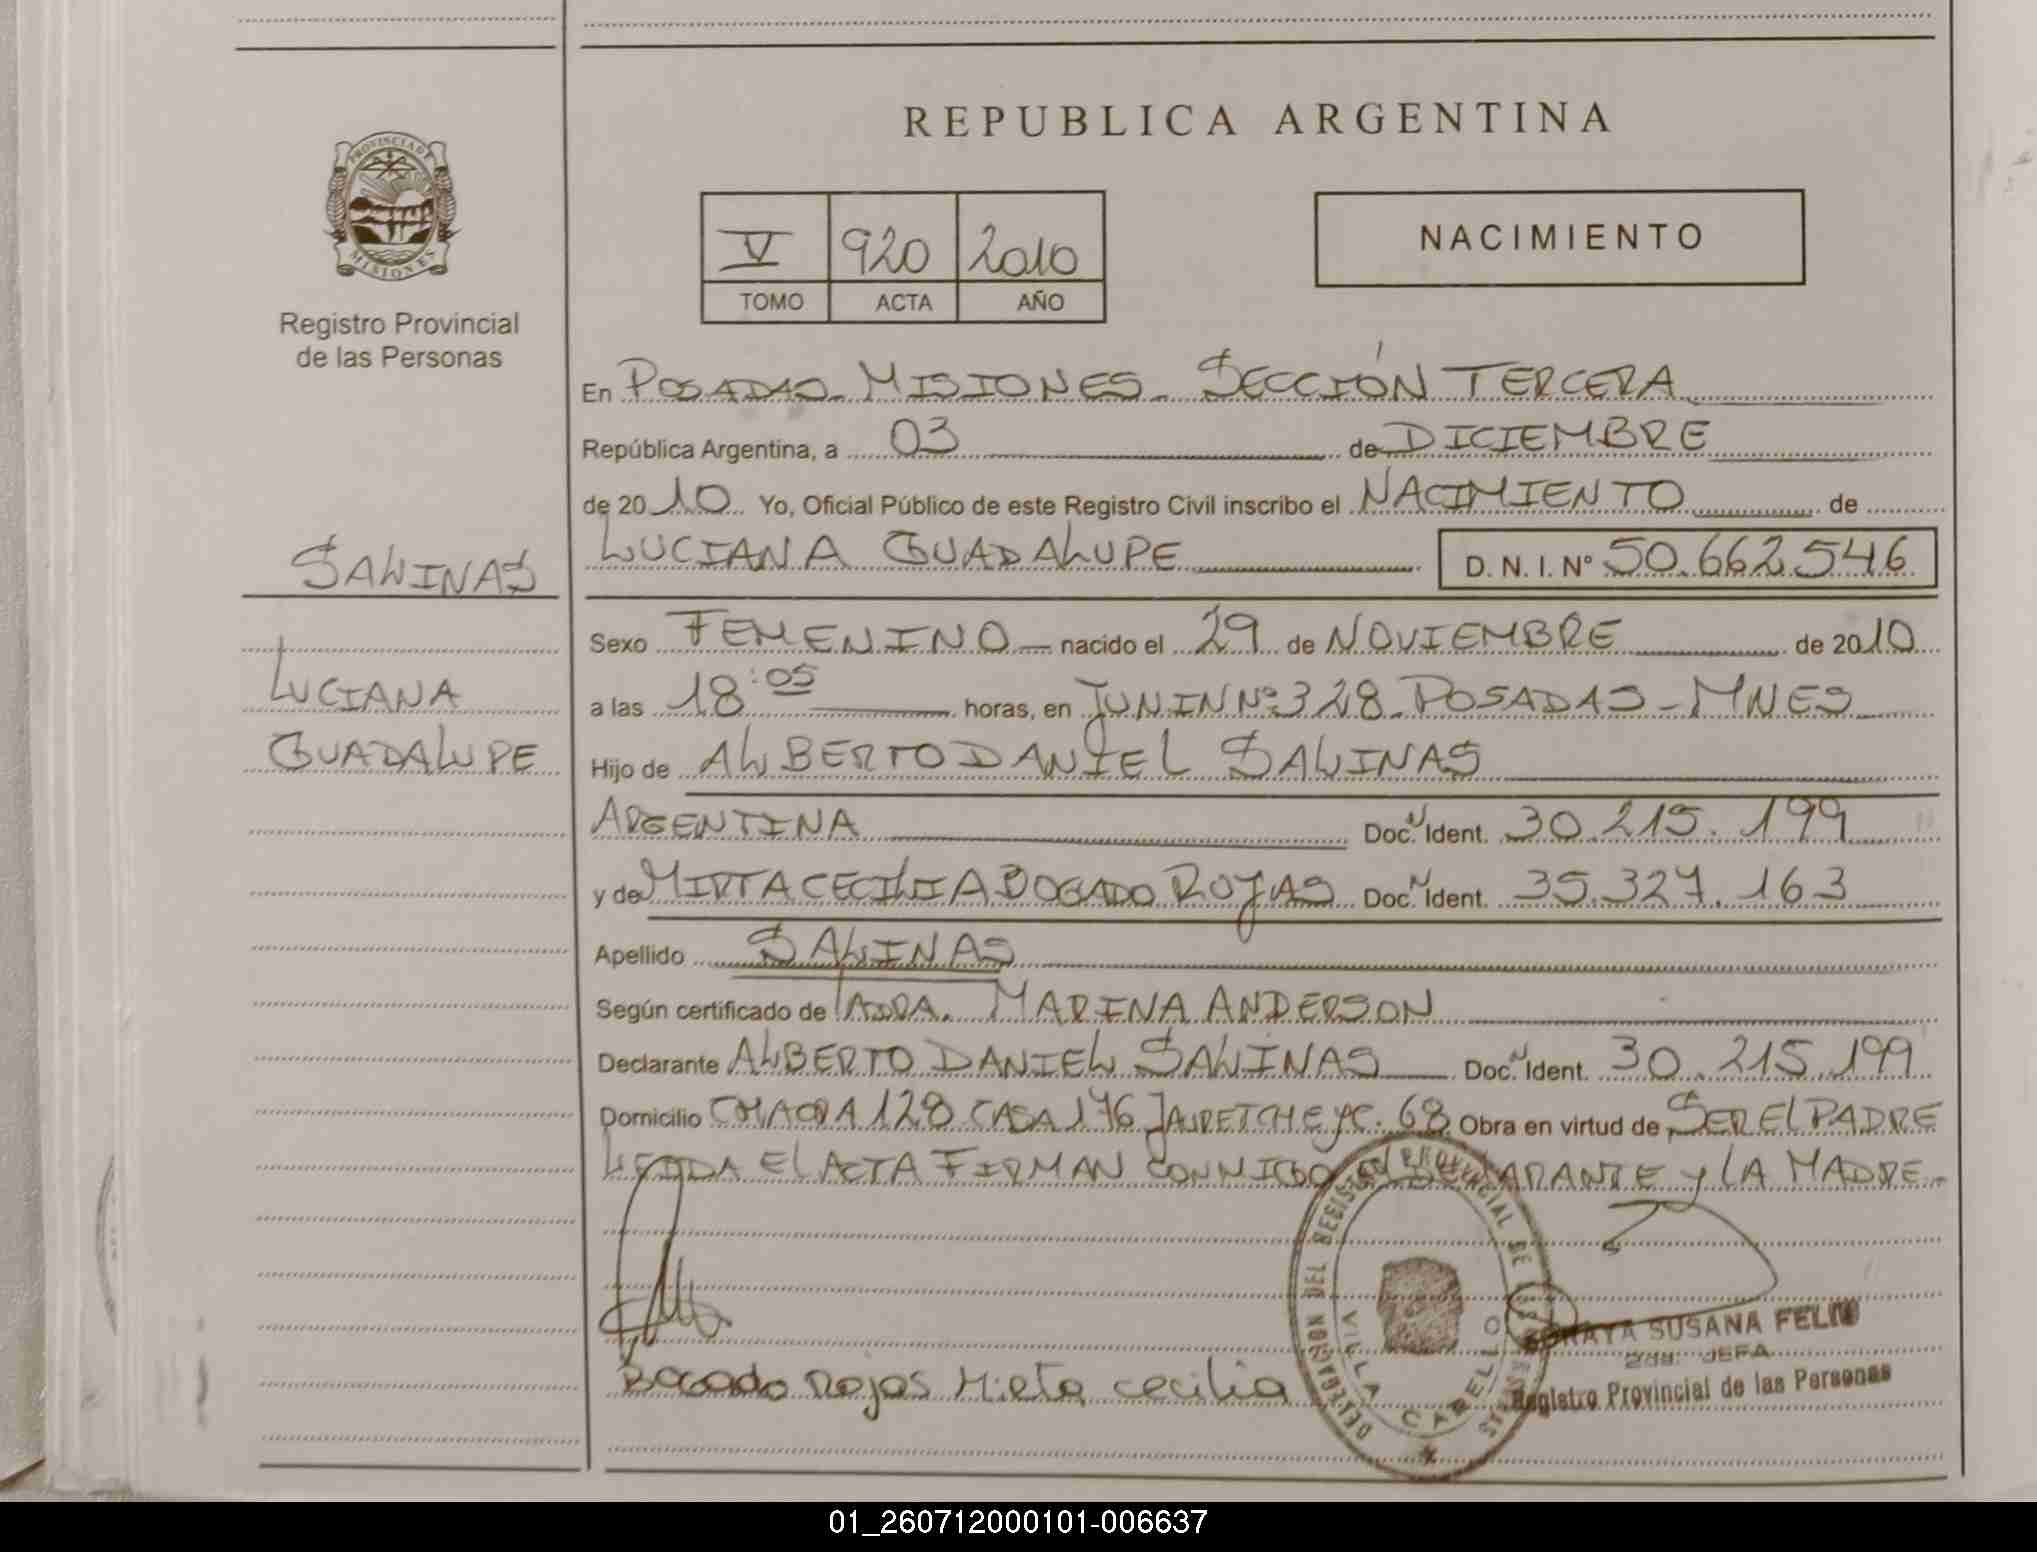 REPUBLICA ARGENTINA
PROVINCIA DE MISIONES
Registro Provincial
de las Personas
V 920 2010
TOMO ACTA AÑO
NACIMIENTO
En POSADAS - MISIONES - SECCIÓN TERCERA
República Argentina, a 03 de DICIEMBRE
de 2010 Yo, Oficial Público de este Registro Civil inscribo el NACIMIENTO de
LUCIANA GUADALUPE D. N. I. Nº 50.662.546
SALINAS
LUCIANA
GUADALUPE
Sexo FEMENINO nacido el 29 de NOVIEMBRE de 2010
a las 18:05 horas, en JUNIN Nº 328 - POSADAS - MNES
Hijo de ALBERTO DANIEL SALINAS
ARGENTINA Doc. Ident. 30.215.199
y de MIRTA CECILIA BOGADO ROJAS Doc. Ident. 35.327.163
Apellido SALINAS
Según certificado de LA DRA. MARINA ANDERSON
Declarante ALBERTO DANIEL SALINAS Doc. Ident. 30.215.199
Domicilio CHACRA 128 CASA 176 JAURETCHE AC. 68 Obra en virtud de SER EL PADRE
LEIDA EL ACTA FIRMAN CONMIGO EL DECLARANTE Y LA MADRE.
DELEGACION DEL REGISTRO PROVINCIAL DE LAS PERSONAS
VILLA CABELLO
SORAYA SUSANA FELIU
2da. JEFA
Registro Provincial de las Personas
Bogado Rojas Mirta Cecilia
01_260712000101-006637